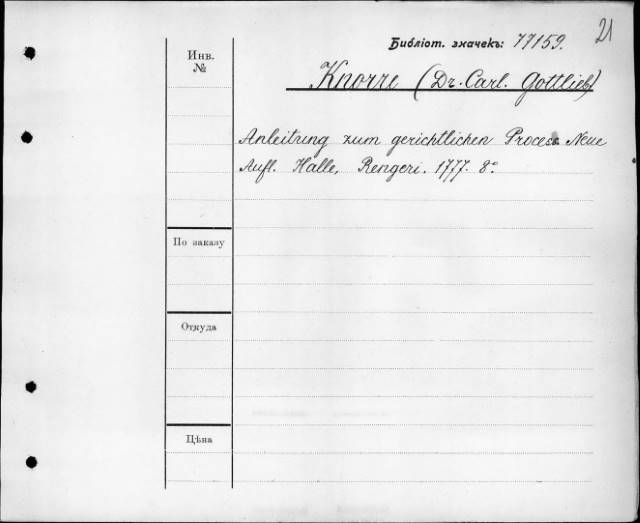 21
Библіот. значекъ: 77159.
Инв.
№
Knorre (Dr. Carl. Gottlieb)
Anleitung zum gerichtlichen Process Neue
Aufl. Halle, Rengeri. 1777. 8°
По заказу
Откуда
Цѣна